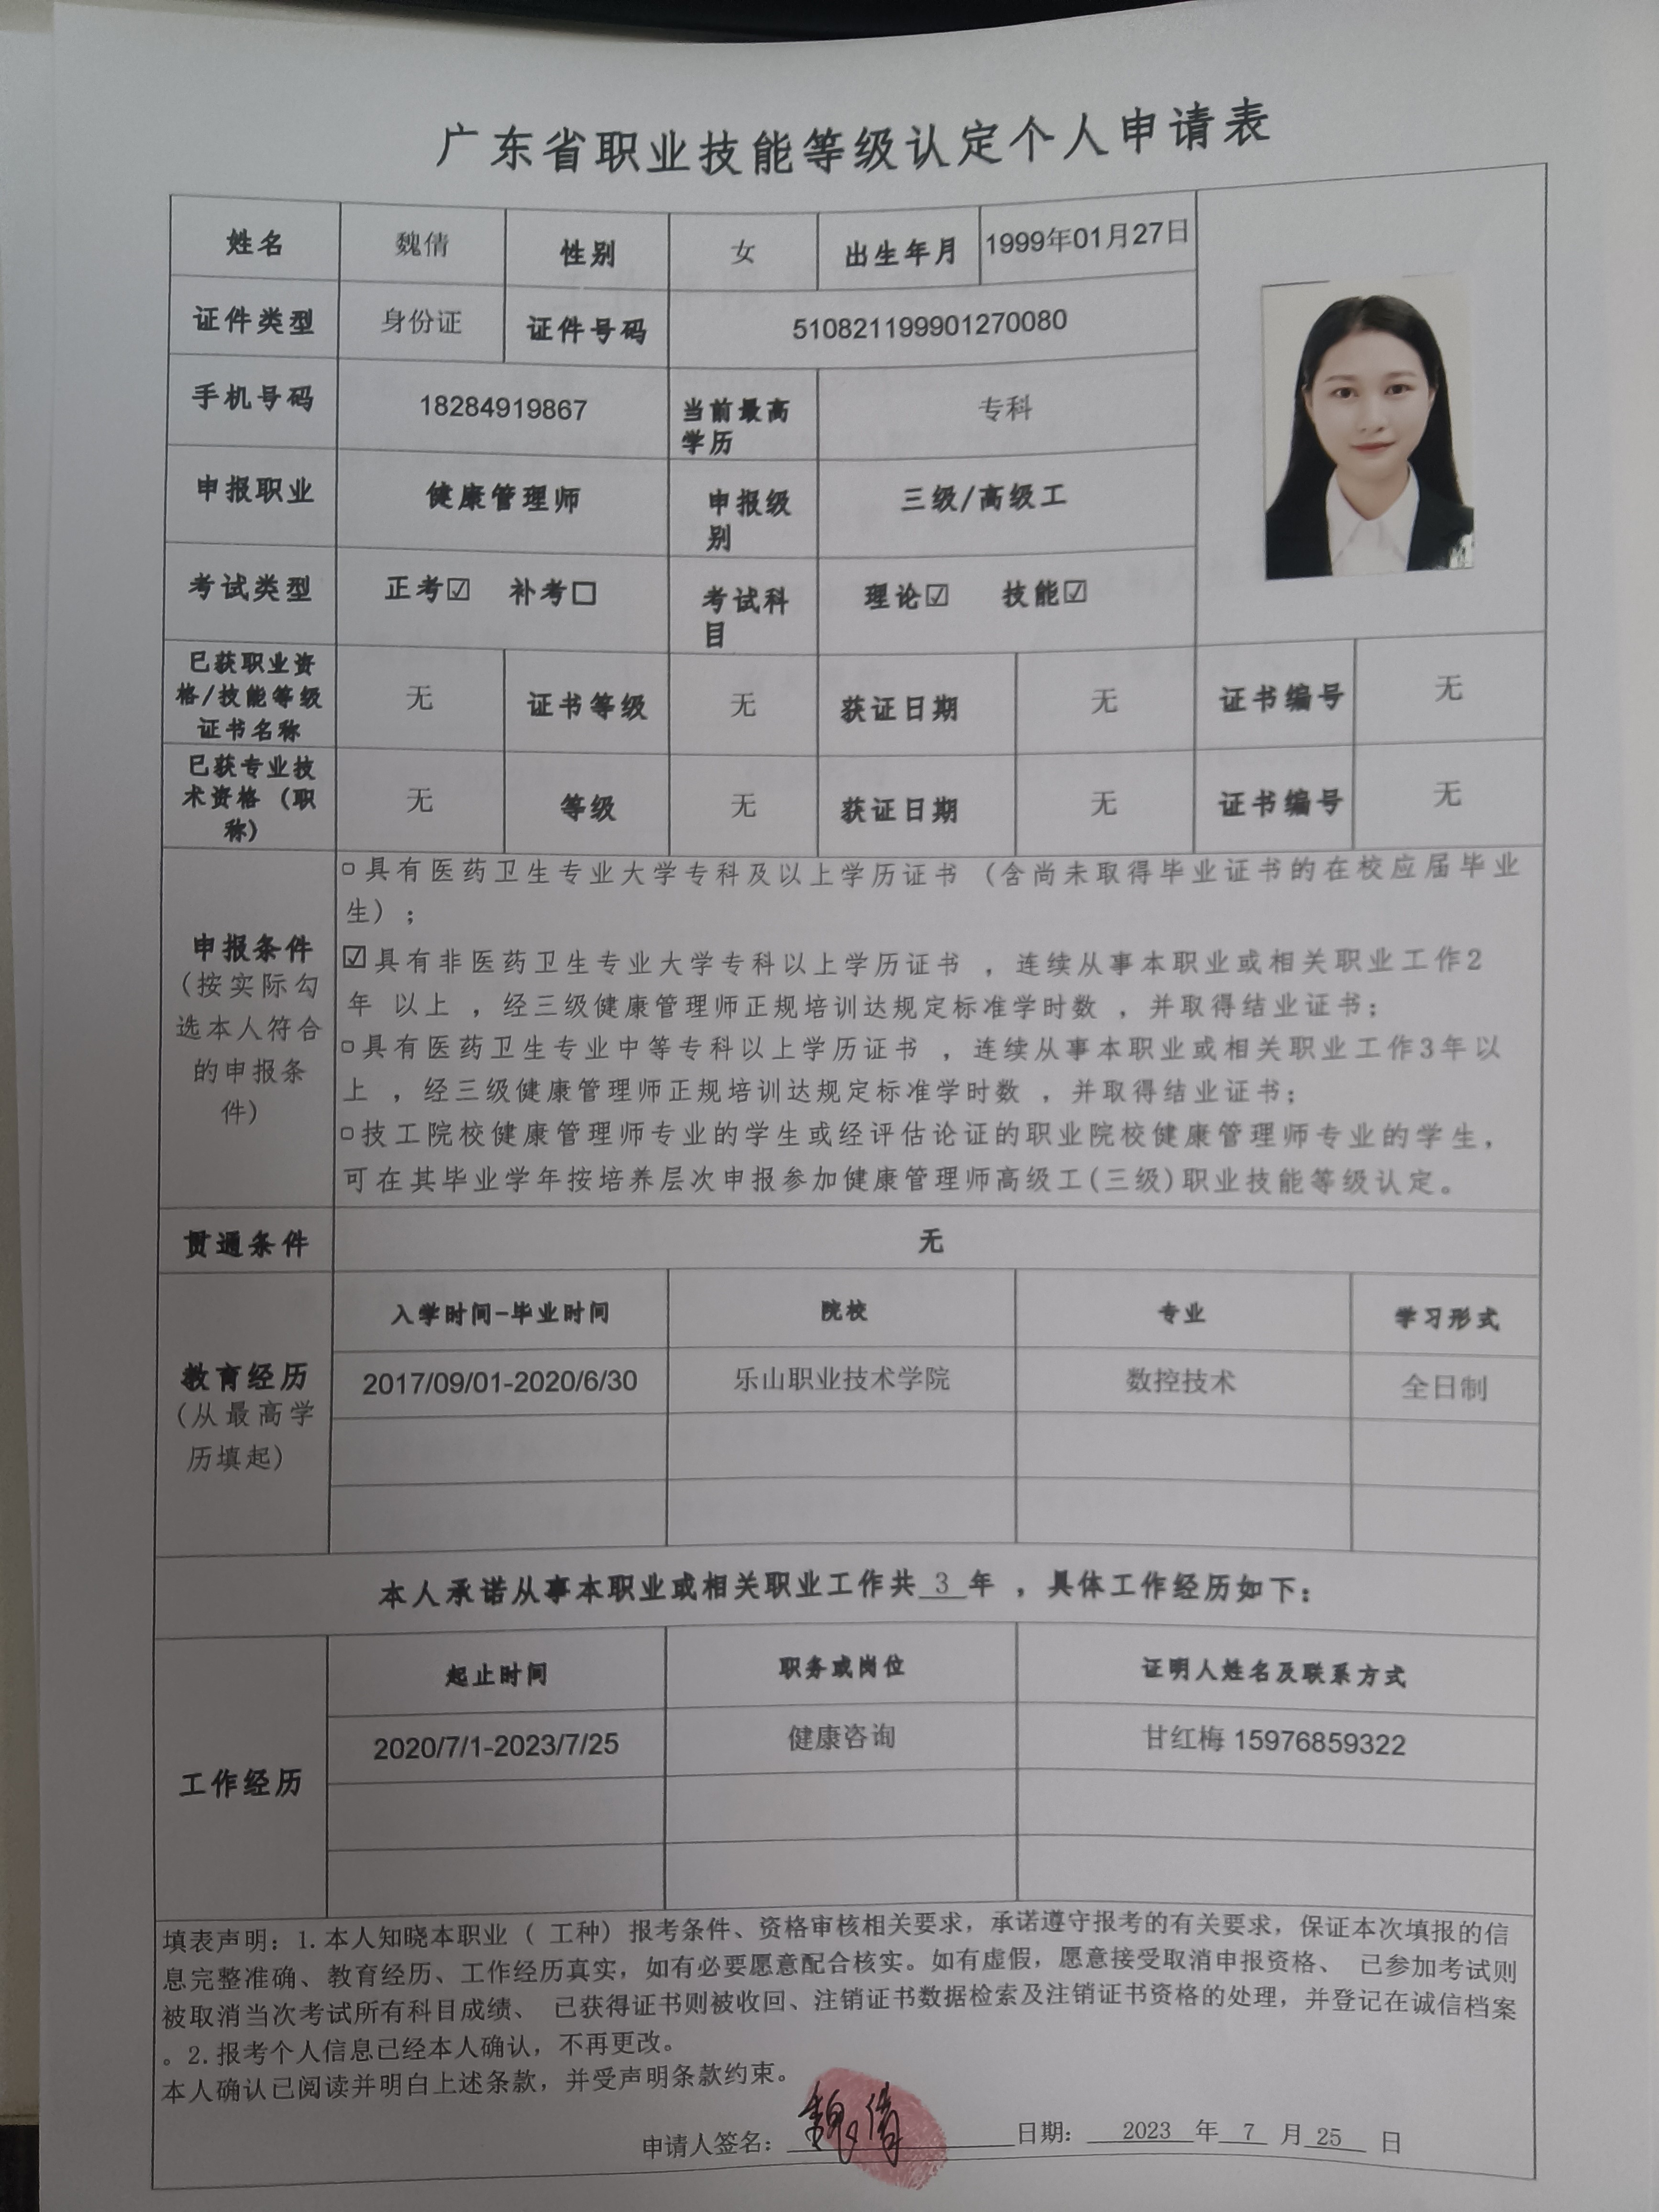 广东省职业技能等级认定个人申请表
姓名 魏倩 性别 女 出生年月 1999年01月27日
证件类型 身份证 证件号码 510821199901270080
手机号码 18284919867 当前最高
学历 专科
申报职业 健康管理师 申报级
别 三级/高级工
考试类型 正考☑ 补考☐ 考试科
目 理论☑ 技能☑
已获职业资
格/技能等级
证书名称 无 证书等级 无 获证日期 无 证书编号 无
已获专业技
术资格（职
称） 无 等级 无 获证日期 无 证书编号 无
申报条件
（按实际勾
选本人符合
的申报条
件）
□具有医药卫生专业大学专科及以上学历证书（含尚未取得毕业证书的在校应届毕业
生）；
☑具有非医药卫生专业大学专科以上学历证书，连续从事本职业或相关职业工作2
年 以上，经三级健康管理师正规培训达规定标准学时数，并取得结业证书；
□具有医药卫生专业中等专科以上学历证书，连续从事本职业或相关职业工作3年以
上，经三级健康管理师正规培训达规定标准学时数，并取得结业证书；
□技工院校健康管理师专业的学生或经评估论证的职业院校健康管理师专业的学生，
可在其毕业学年按培养层次申报参加健康管理师高级工(三级)职业技能等级认定。
贯通条件 无
教育经历
（从最高学
历填起）
入学时间-毕业时间 院校 专业 学习形式
2017/09/01-2020/6/30 乐山职业技术学院 数控技术 全日制
本人承诺从事本职业或相关职业工作共 3 年，具体工作经历如下：
工作经历
起止时间 职务或岗位 证明人姓名及联系方式
2020/7/1-2023/7/25 健康咨询 甘红梅 15976859322
填表声明：1.本人知晓本职业（ 工种）报考条件、资格审核相关要求，承诺遵守报考的有关要求，保证本次填报的信
息完整准确、教育经历、工作经历真实，如有必要愿意配合核实。如有虚假，愿意接受取消申报资格、 已参加考试则
被取消当次考试所有科目成绩、 已获得证书则被收回、注销证书数据检索及注销证书资格的处理，并登记在诚信档案
。2.报考个人信息已经本人确认，不再更改。
本人确认已阅读并明白上述条款，并受声明条款约束。
申请人签名：魏倩 日期： 2023 年 7 月 25 日